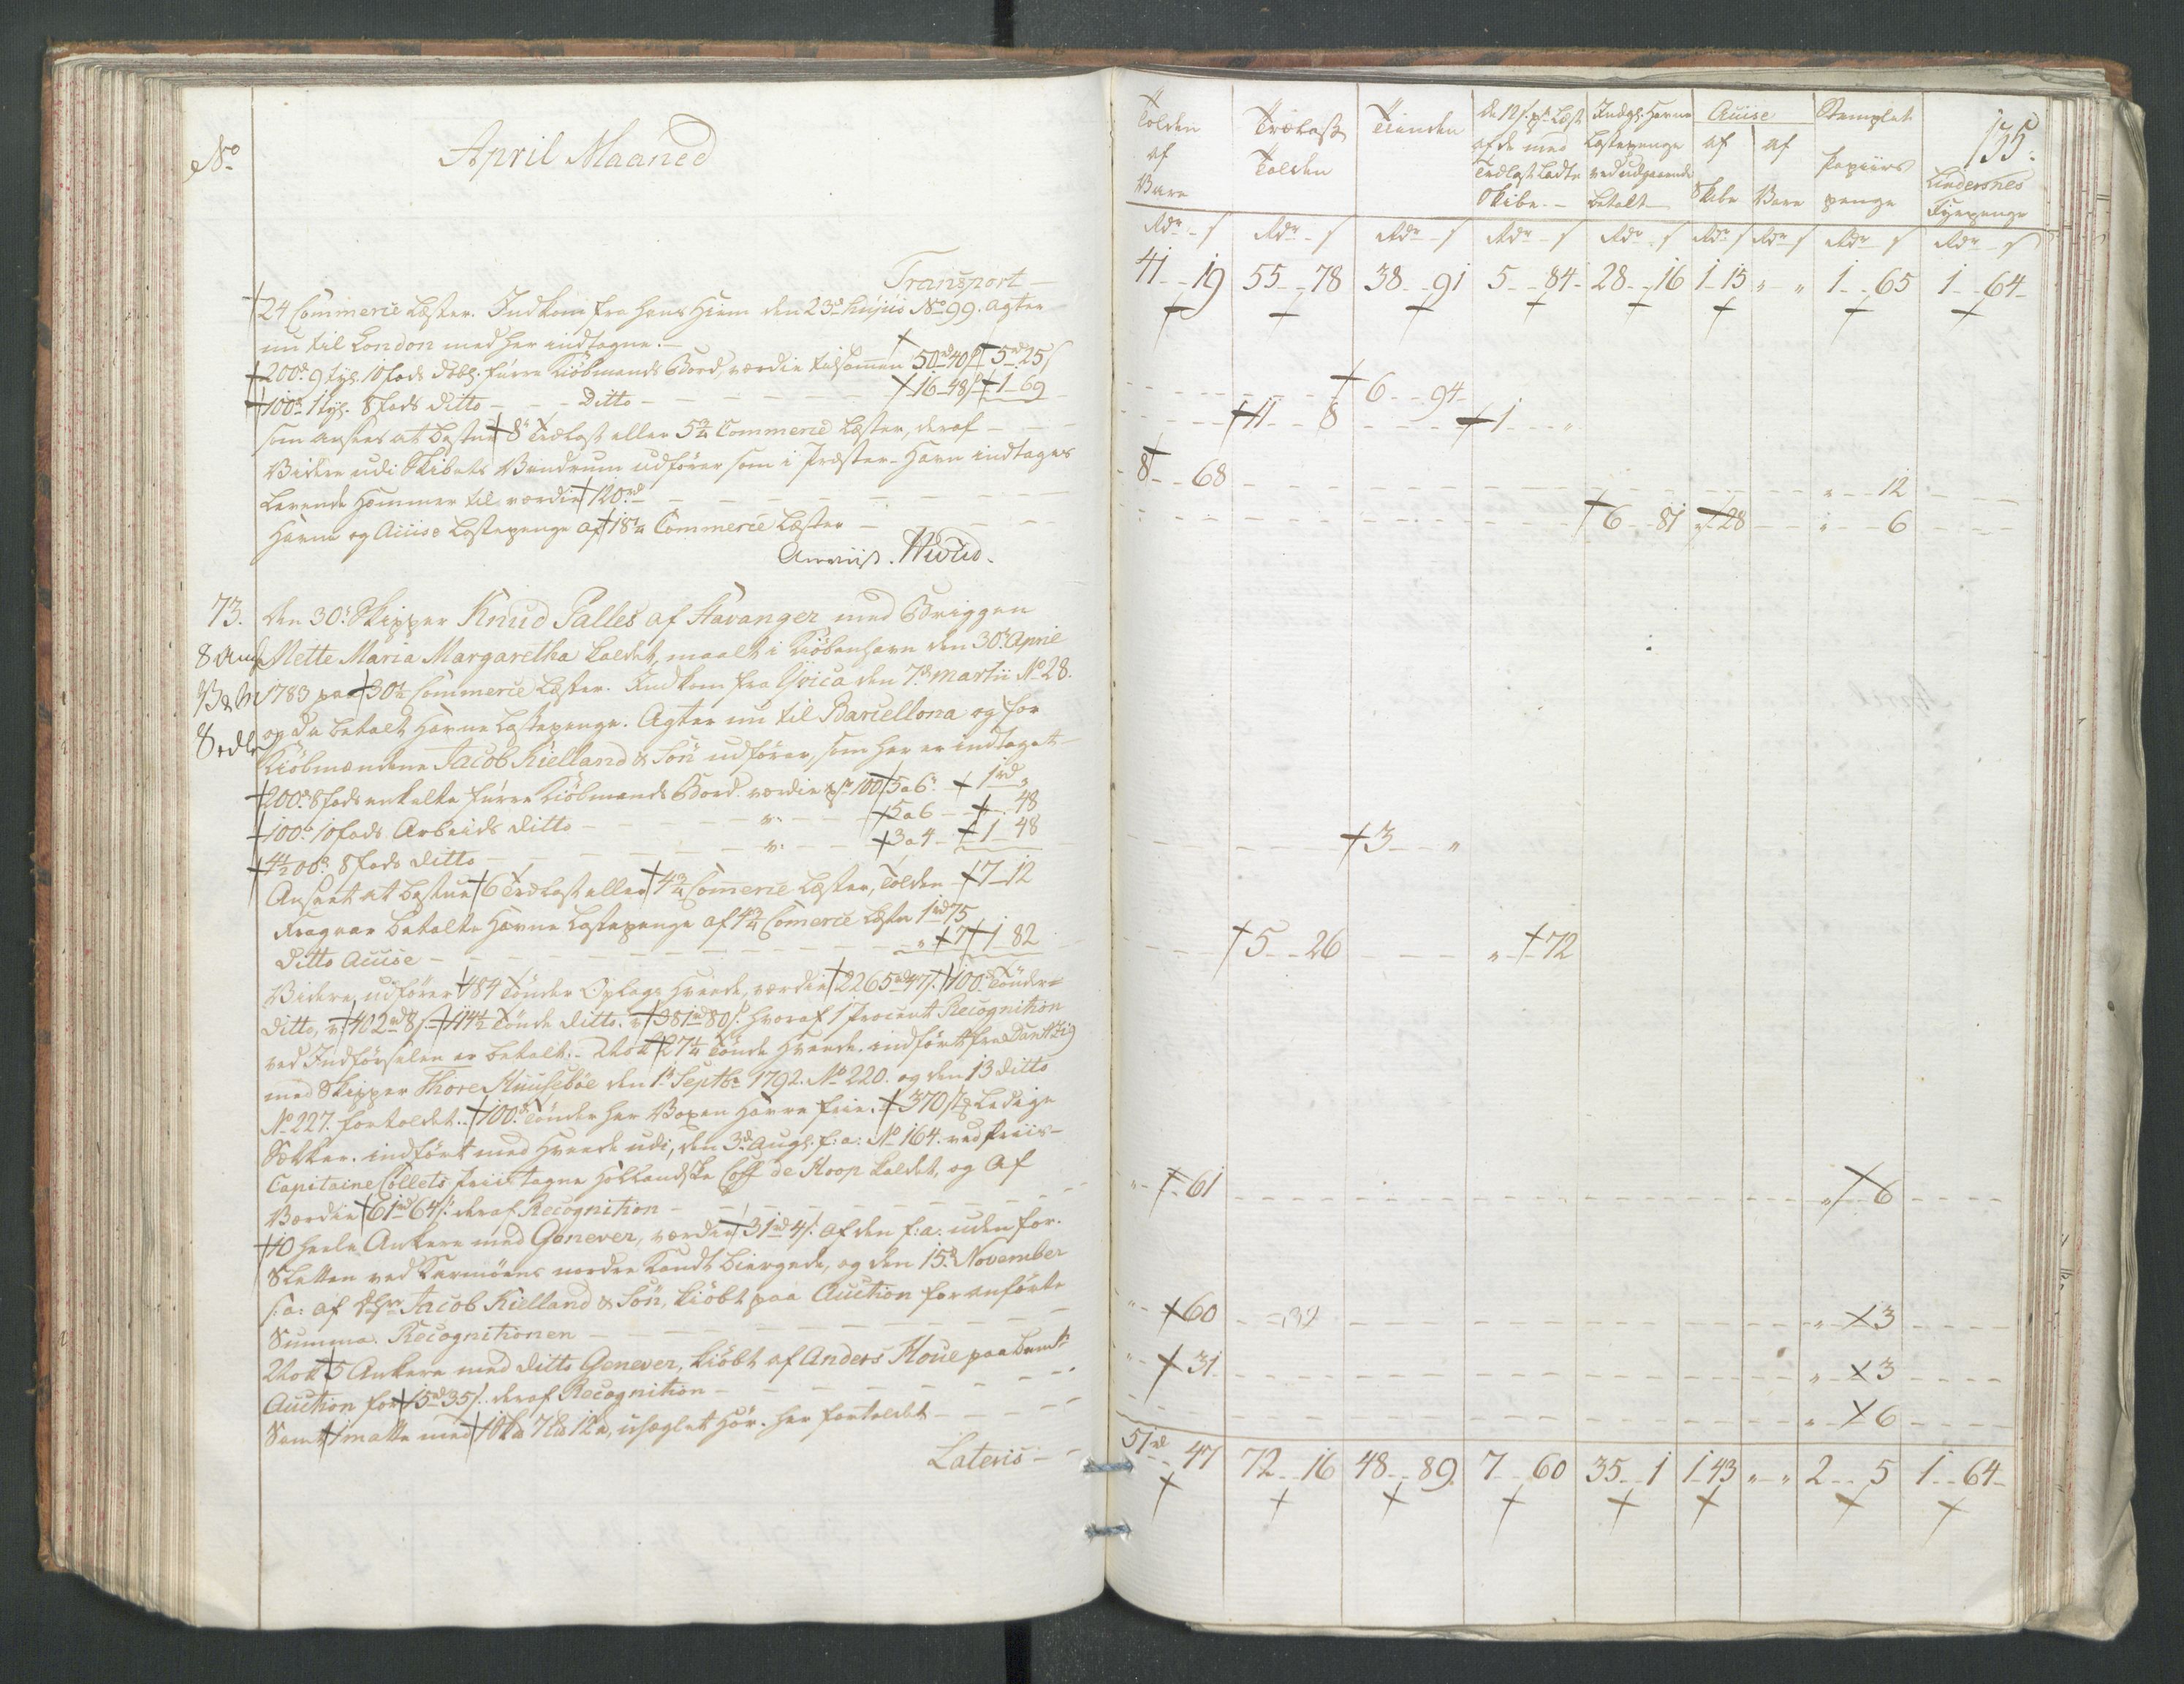 No
April Maaned
Transport
24 Commerce Læster. Indkom fra hans Hiem den 23de hujus No 99. agter
nu til London med her indtagne.
200de 9 tys. 10 fods dobl. furre Kiöbmands Bord, værdie tilsammen 50rd 40s 5rd 25s
100de 1 tys. 8 fods ditto - - Ditto - 16-48s 1-69
som ansees at bestaa 8 Trælast eller 5 3/4 Commerce Læster, deraf
Videre udi Skibets Bundrum udförer som i Præster-Havn indtages
Levende Hummer til værdie 120rd
Havne og Acise Lastepenge af 18 1/4 Commerce Læster
Anviist.
73. den 30te Skipper Knud Falles af Stavanger med Briggen
Mette Maria Margaretha kaldet, maalt i Kiöbenhavn den 30te April
1783 paa 30 1/2 Commerce Læster. Indkom fra Yvica den 7de Martii No 28.
og da betalt Havne Lastepenge. Agter nu til Barcellona og for
Kiöbmændene Jacob Kielland & Sön udförer, som her er indtaget
200de 8 fods enkelte furre Kiöbmands Bord værdie pr 100 5 a 6 1rd „
100de 10 fods Arbeids ditto - - 5 a 6 - 48
4 1/2 00de 8 fods ditto - - 3 a 4 - 1-48
Anseet at bestaa 6 Trælast eller 4 3/4 Comerce Læster, Tolden 7-12
Fragvær betalte Havne Lastepenge af 4 3/4 Comerce Læster 1rd 75
Ditto Acise - 7 1-82
Videre udförer 484 Tönder Oplags Hvede, værdie 2265rd 47s. 100de Tönder
ditto, 402rd 8s. 114 1/2 Tönde ditto. 381rd 80s. hvoraf 1 Procent Recognition
ved Indförselen er betalt. Nok 27 1/4 Tönde Hvede. indfört fra Dantzig
med Skipper Thore Huuseböe den 1te Septbr 1792. No 220. og den 13 ditto
No 227. fortoldet. 100de Tönder her Voxen Havre frie. 370 stk Ledige
Sække. indfört med Hvede udi, den 3de Aug. f: a: No 164. ved Priis-
Capitaine Collets Priistagne Hollandske Coff de Hoop kaldet, og af
Værdie 61rd 64s. deraf Recognition
10 heele Ankere med Genever, værdie 31rd 4s. af den f: a: uden for
Sletten ved Karmöens nordre Kandt biergede, og den 15de November
s: a: af Hr Jacob Kielland & Sön, kiöbt paa Auction for anförte
Summa. Recognitionen
Nok 5 Ankere med ditto Genever, kiöbt af Anders Houe paa bemte
Auction for 15rd 35s. deraf Recognition
Samt 1 matte med 10 7 12, uheglet Hör. her fortoldet
Lateris
Tolden af Vare
Trælast Tolden
Tienden
de 12s. pr Læst af de med Trælast Ladte Skibe
Indgl. Havne Lastepenge ved udgaaende betalt
Acise
af Skibe
af Vare
Stemplet Papiirs penge
Lindersnes Fyrpenge
155.
Rdr s Rdr s Rdr s Rdr s Rdr s Rdr s Rdr s Rdr s Rdr s
41 19 55 78 38 91 5 84 28 16 1 15 „ „ 1 65 1 64
6 94
11 8 1 „
8 68 „ 12
6 81 „ 28 „ 6
3 „
5 26 „ 72
„ 61 „ 6
„ 60 „ 3
„ 31 „ 3
„ 6
51rd 47 72 16 48 89 7 60 35 1 1 43 „ „ 2 5 1 64